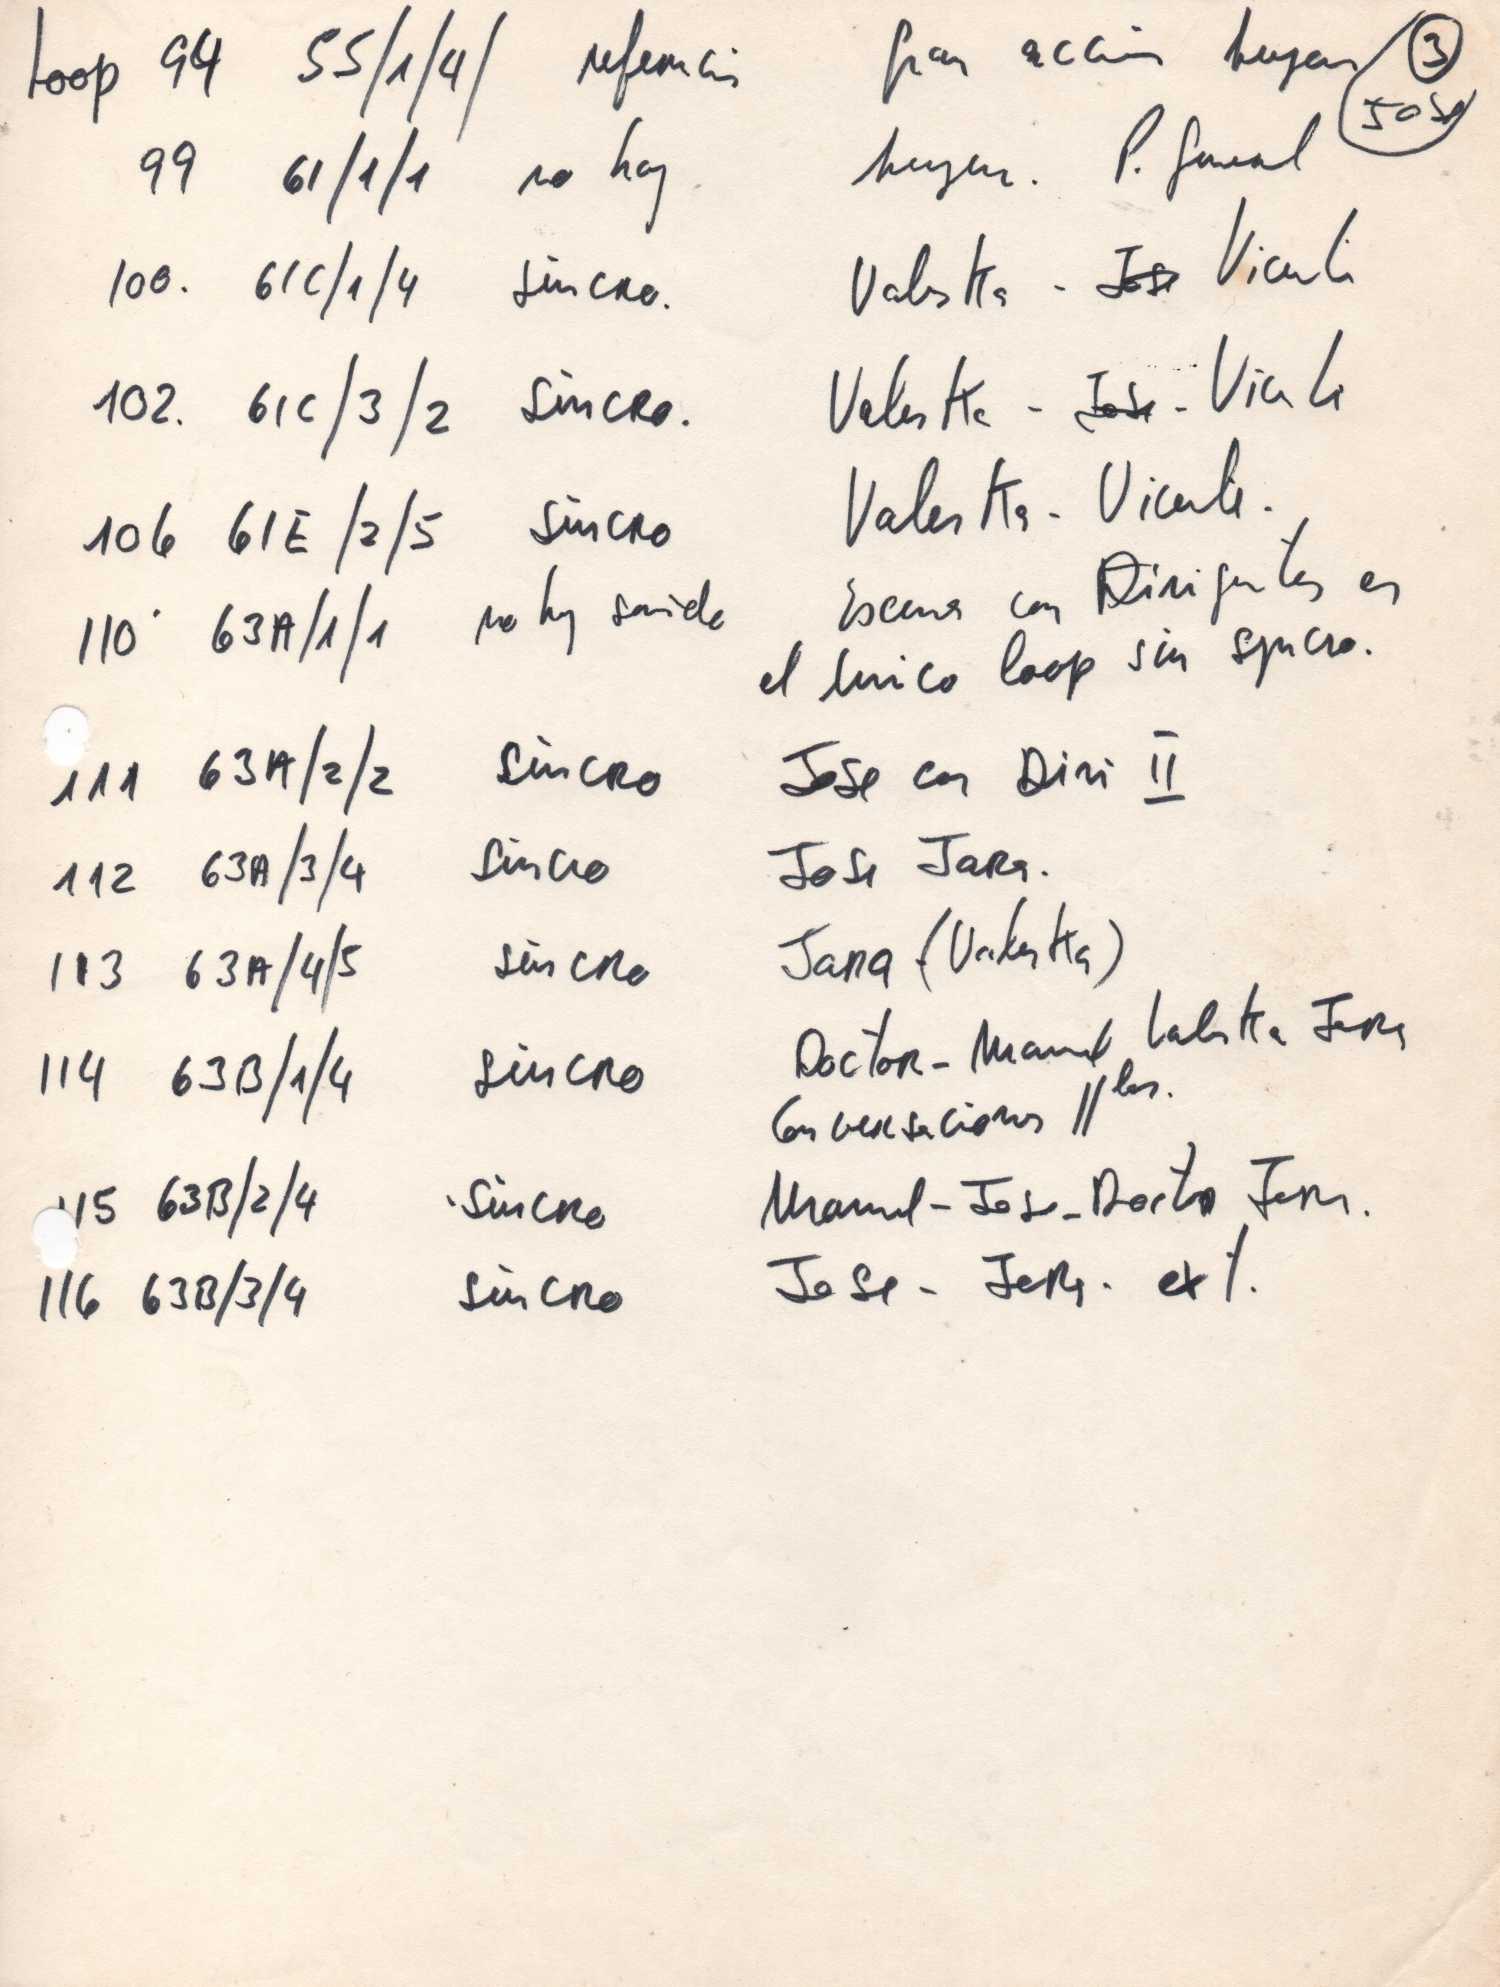 Loop 94 55/1/4/ referencia gran acción huyen 3
Jose
99 61/1/1 no hay huyen. P. General
100. 61C/1/4 sincro. Valeska - Jose Vicente
102. 61C/3/2 sincro. Valeska - Jose - Vicente
106 61E/2/5 sincro Valeska - Vicente.
110 63A/1/1 no hay sonido Escena con Dirigentes es
el único loop sin syncro.
111 63A/2/2 sincro Jose con Diri II
112 63A/3/4 sincro Jose Jara.
113 63A/4/5 sincro Jara (Valeska)
114 63B/1/4 sincro Doctor - Manuel Valeska Jara
Conversaciones //las.
115 63B/2/4 sincro Manuel - Jose - Doctor Jara.
116 63B/3/4 sincro Jose - Jara. ext.